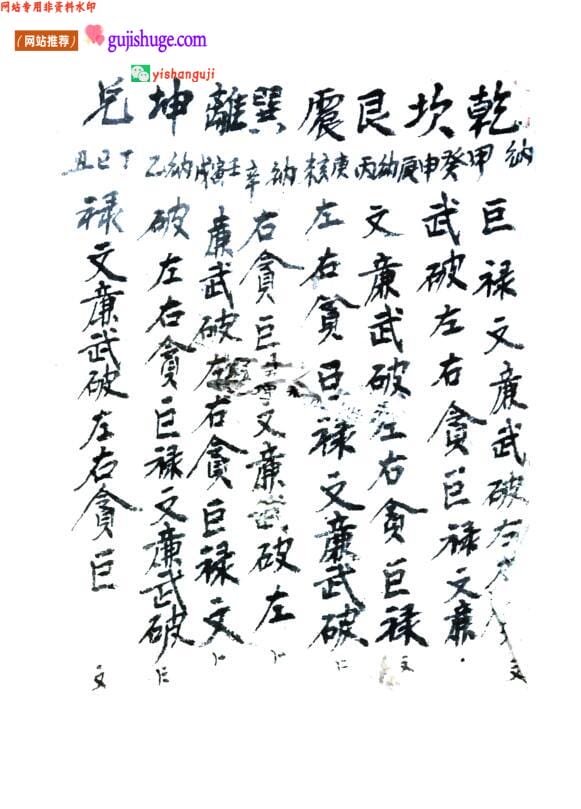 网站专用非资料水印
（网站推荐） gujishuge.com
yishanguji
乾 纳甲 巨禄文廉武破左右 文
坎 癸申 武破左右贪巨禄文廉
艮 纳丙 文廉武破左右贪巨禄 文
震 庚亥 左右贪巨禄文廉武破
巽 纳辛 右贪巨 文廉武破左
離 壬寅戌 廉武破左右贪巨禄文
坤 纳乙 破左右贪巨禄文廉武破
兑 丁巳丑 禄文廉武破左右贪巨 文